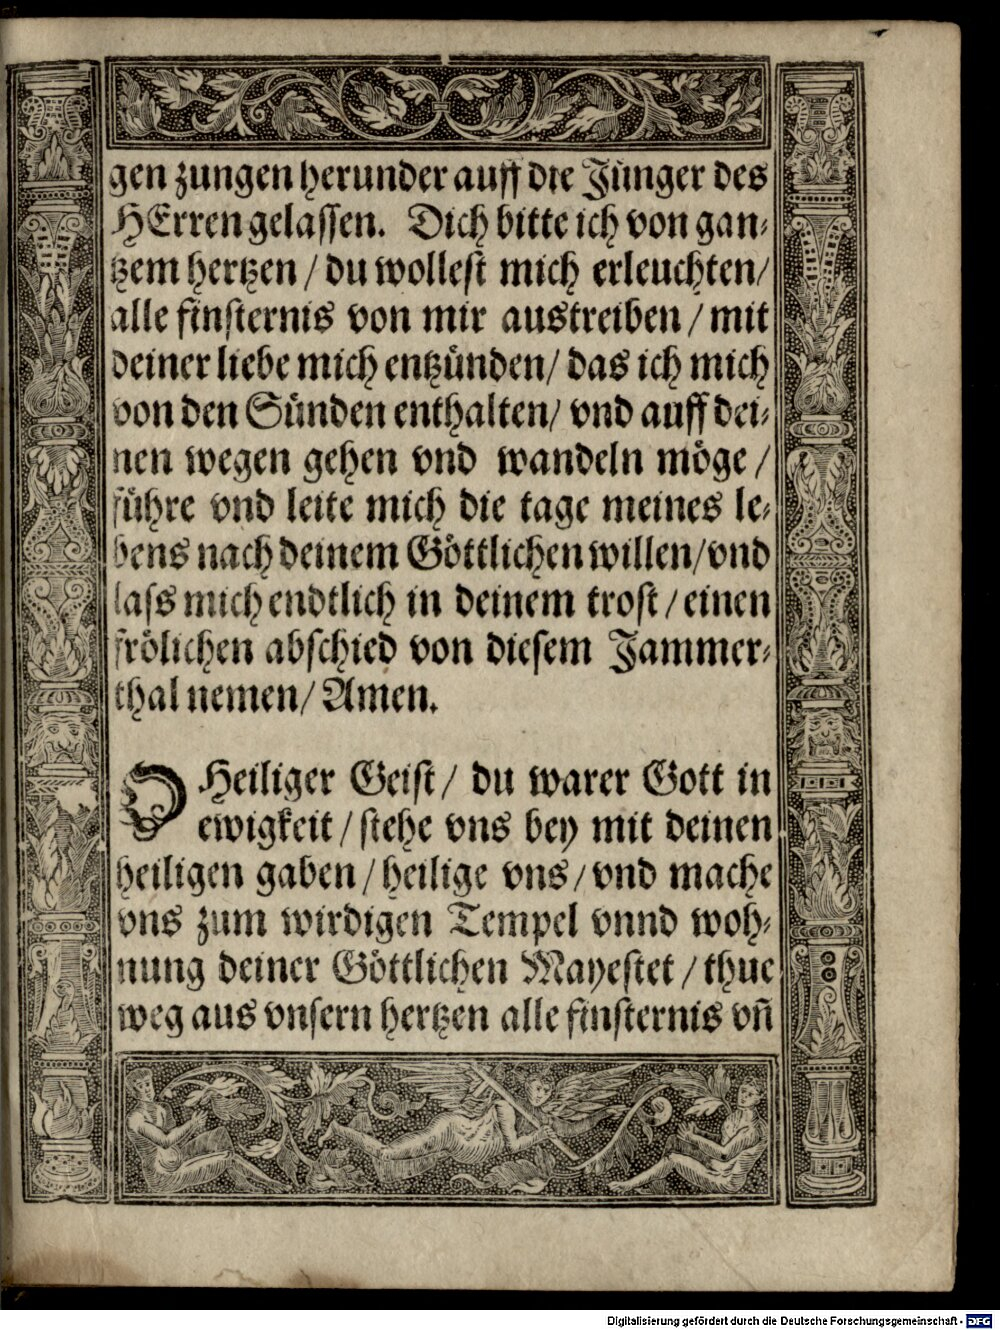 gen zungen herunder auff die Jünger des
HErren gelassen. Dich bitte ich von gan-
tzem hertzen / du wollest mich erleuchten /
alle finsternis von mir austreiben / mit
deiner liebe mich entzünden / das ich mich
von den Sünden enthalten / vnd auff dei-
nen wegen gehen vnd wandeln möge /
führe vnd leite mich die tage meines le-
bens nach deinem Göttlichen willen / vnd
lass mich endtlich in deinem trost / einen
frölichen abschied von diesem Jammer-
thal nemen / Amen.
O Heiliger Geist / du warer Gott in
ewigkeit / stehe vns bey mit deinen
heiligen gaben / heilige vns / vnd mache
vns zum wirdigen Tempel vnnd woh-
nung deiner Göttlichen Mayestet / thue
weg aus vnsern hertzen alle finsternis vn̄
Digitalisierung gefördert durch die Deutsche Forschungsgemeinschaft - DFG